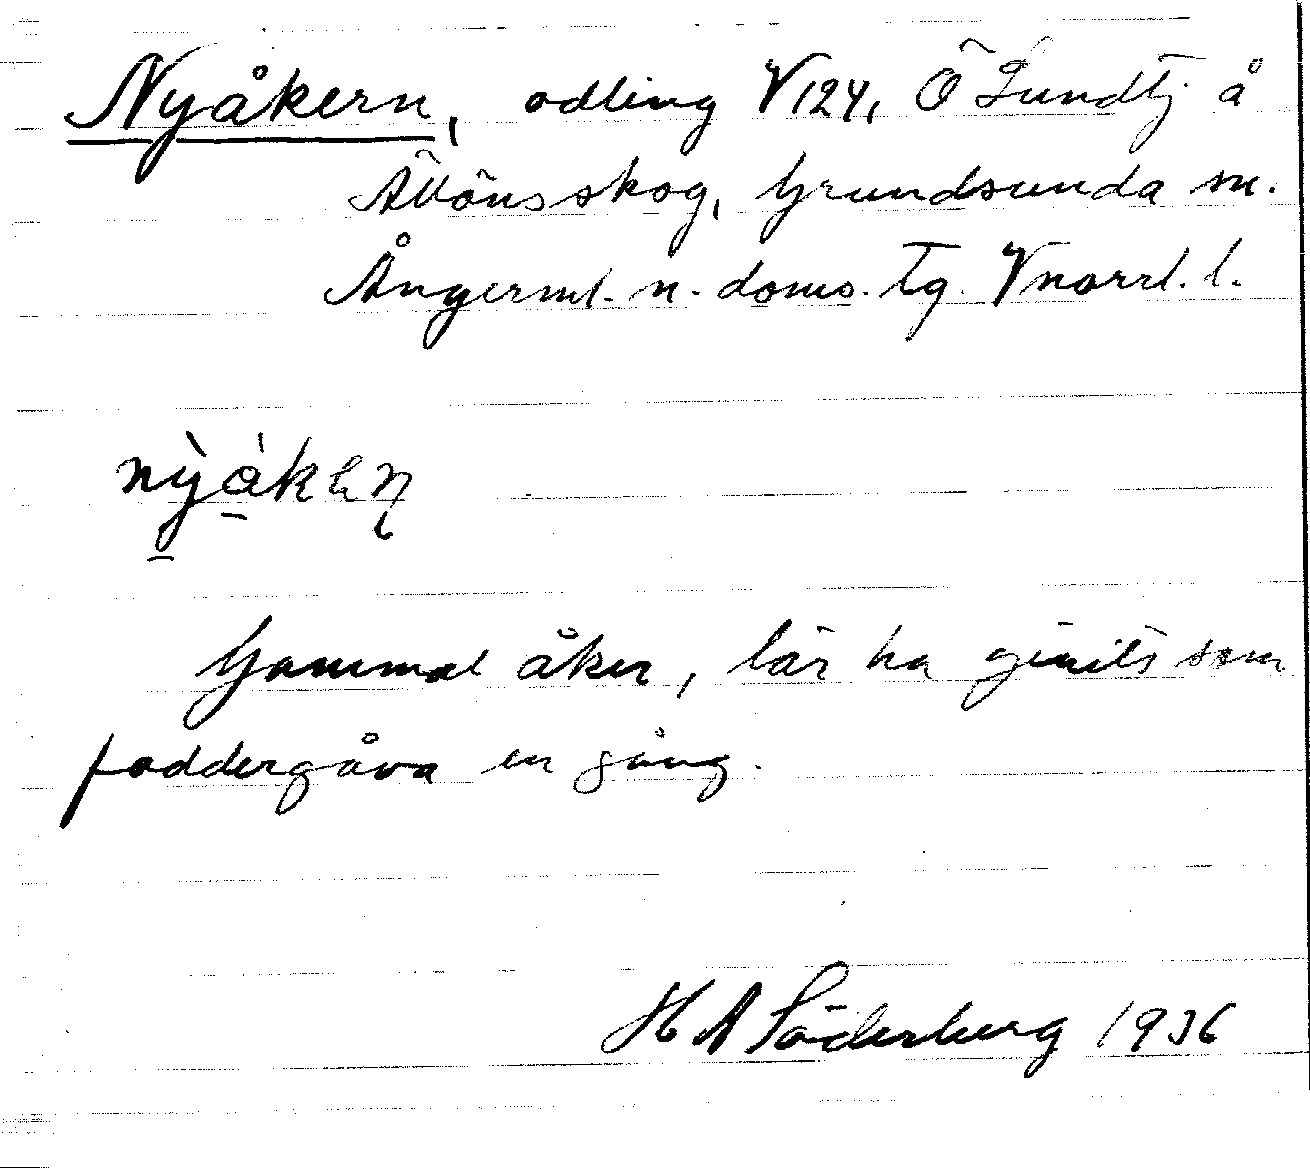 Nyåkern, odling V 124, Ö Lundtj å
Ävönsskog, Grundsunda sn.
Ångerml. n. doms. tg. Vnorrl. l.
nỳák
Gammal åker, lär ha givits som
foddergåva en gång.
H A Söderberg 1936